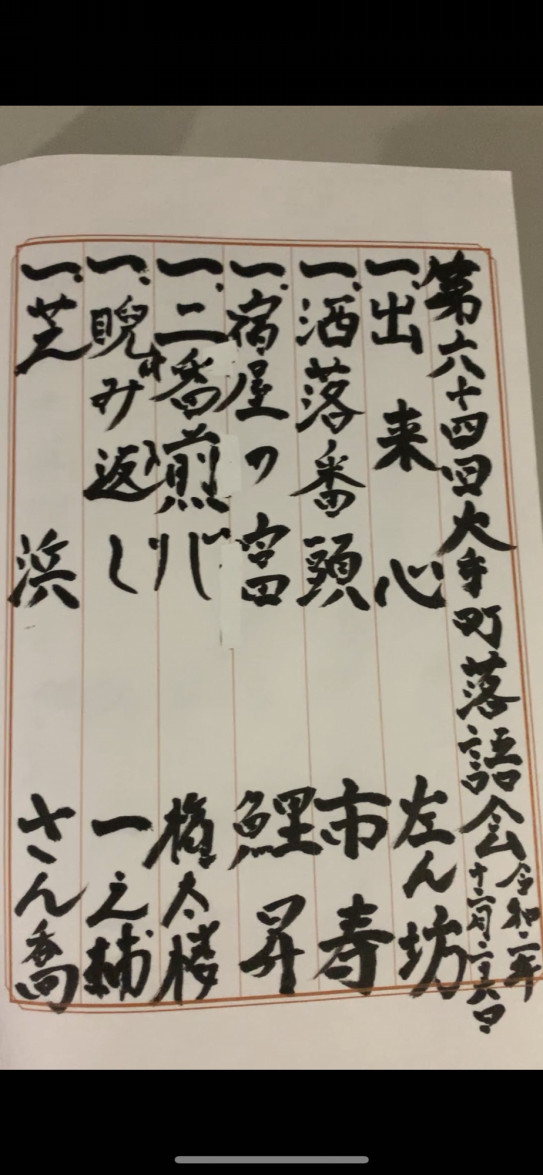 第六十四回大手町落語会
令和二年
十二月二十六日
一、出来心 左ん坊
一、洒落番頭 市寿
一、宿屋の富 鯉昇
一、二番煎じ 権太楼
一、睨み返し 一之輔
一、芝浜 さん喬